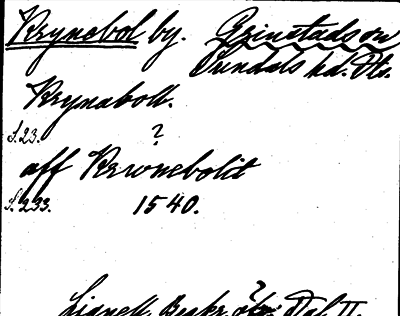 Krynebol by. Grinstads sn
Sundals hd. Dls.
Krynaboll.
S. 23. ?
aff Krwnebolit
S. 233. 1540.
Lignell, Beskr. Dal II.